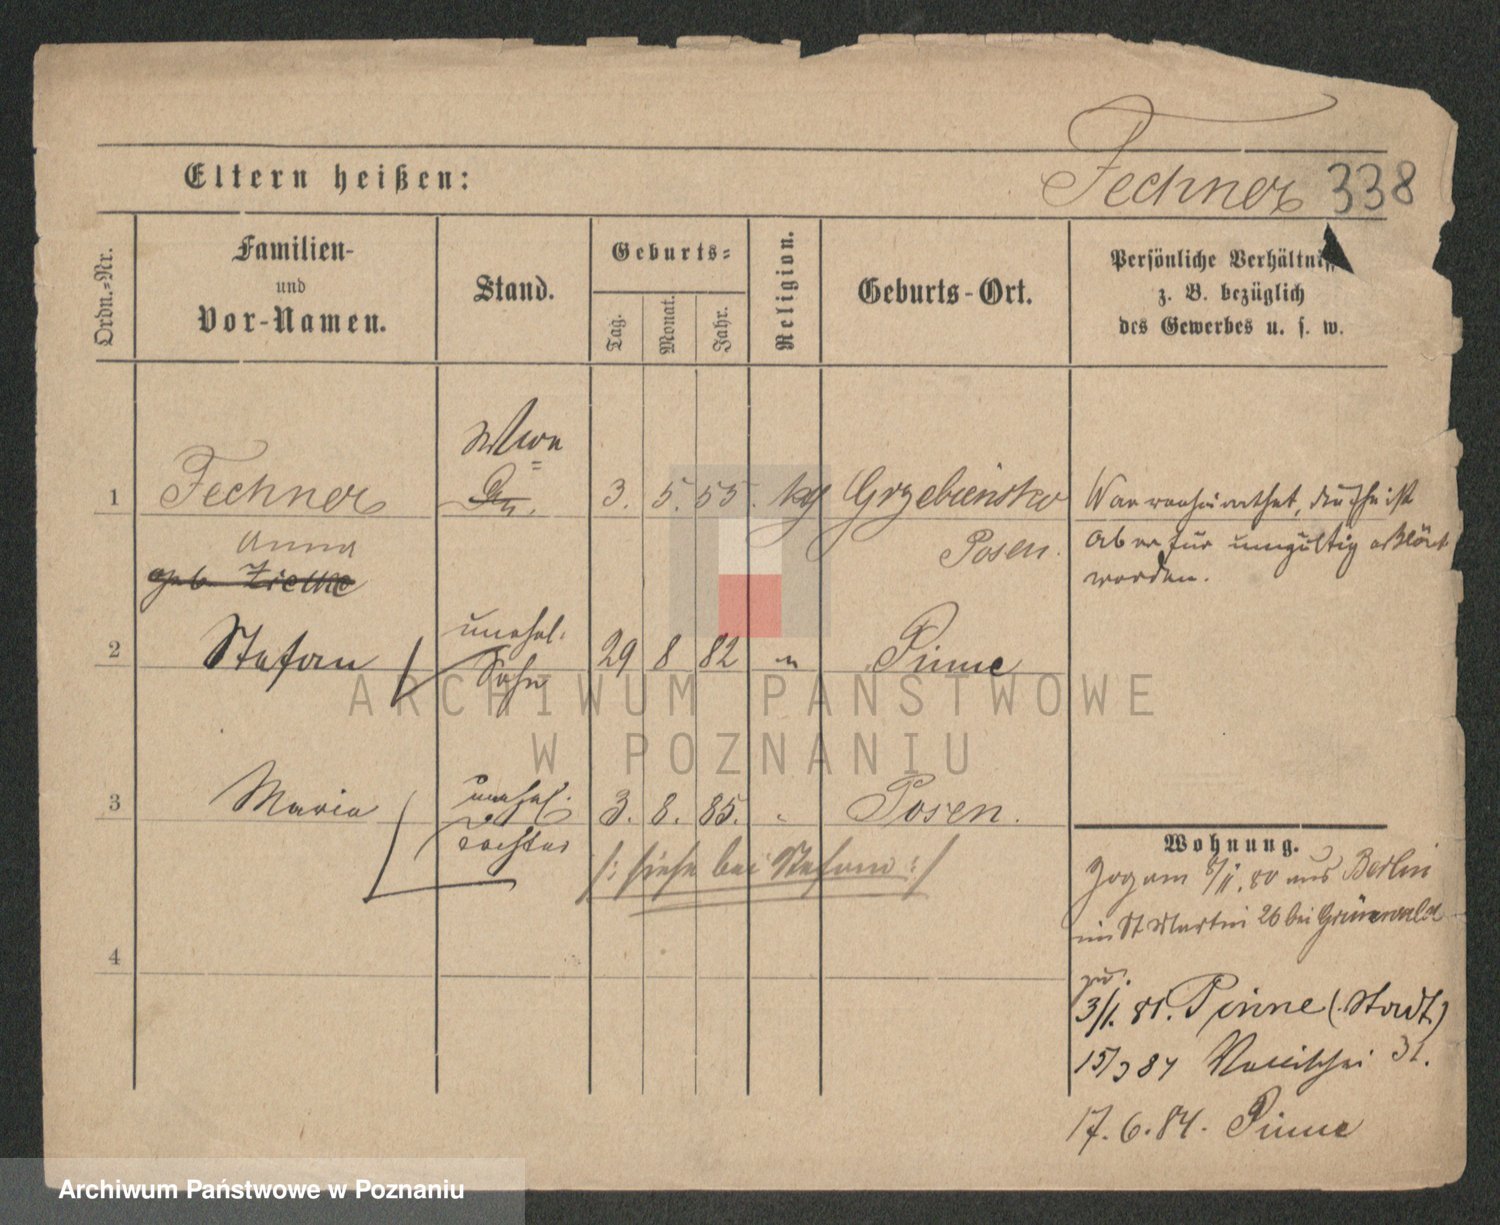 Eltern heißen:
Fechner 338
Ordn.-Nr.
Familien-
und
Vor-Namen.
Stand.
Geburts-
Tag.
Monat.
Jahr.
Religion.
Geburts-Ort.
Persönliche Verhältniss
z. B. bezüglich
des Gewerbes u. s. w.
Wwe
1 Fechner 3. 5. 55. kg Grzebiensko
Posen.
Anna
geb.
War verheirathet, die Ehe ist
aber für ungültig erklärt
worden.
2 Stefan unehel. Sohn 29 8 82 " Pinne
3 Maria unehel. Tochter 3. 8. 85. " Posen.
/: siehe bei Stefan :/
4
Wohnung.
Zog am 8/11. 80 aus Berlin
in St Martin 26 bei Grünewald
zu.
3/1. 81. Pinne (Stadt)
15/3 84 31.
17. 6. 84. Pinne
ARCHIWUM PAŃSTWOWE
W POZNANIU
Archiwum Państwowe w Poznaniu